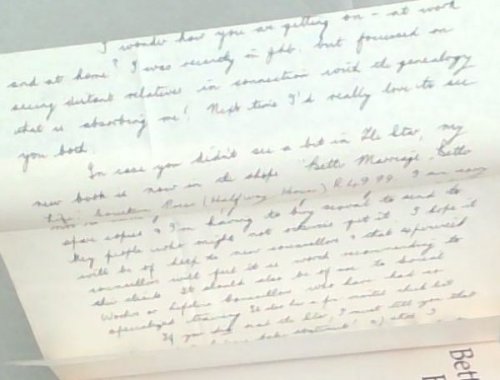 I wonder how you are getting on - at work
and at home? I was recently in Jhb. but focussed on
seeing distant relatives in connection with the genealogy
that is absorbing me! Next time I'd really love to see
you both.
In case you didn't see a bit in The Star, my
new book is now in the shops "Better Marriage, Better
(Halfway House) R49.99. I am
spare copies & I'm having to buy several to send to
key people who might not otherwise get it. I hope it
will be of help to new counsellors & that experienced
counsellors will feel it is worth recommending to
their clients. It should also be of use to Social
Workers or Lifeline Counsellors who have had no
specialized training. It also has a
If you did read the Star, I must tell you that
Bett